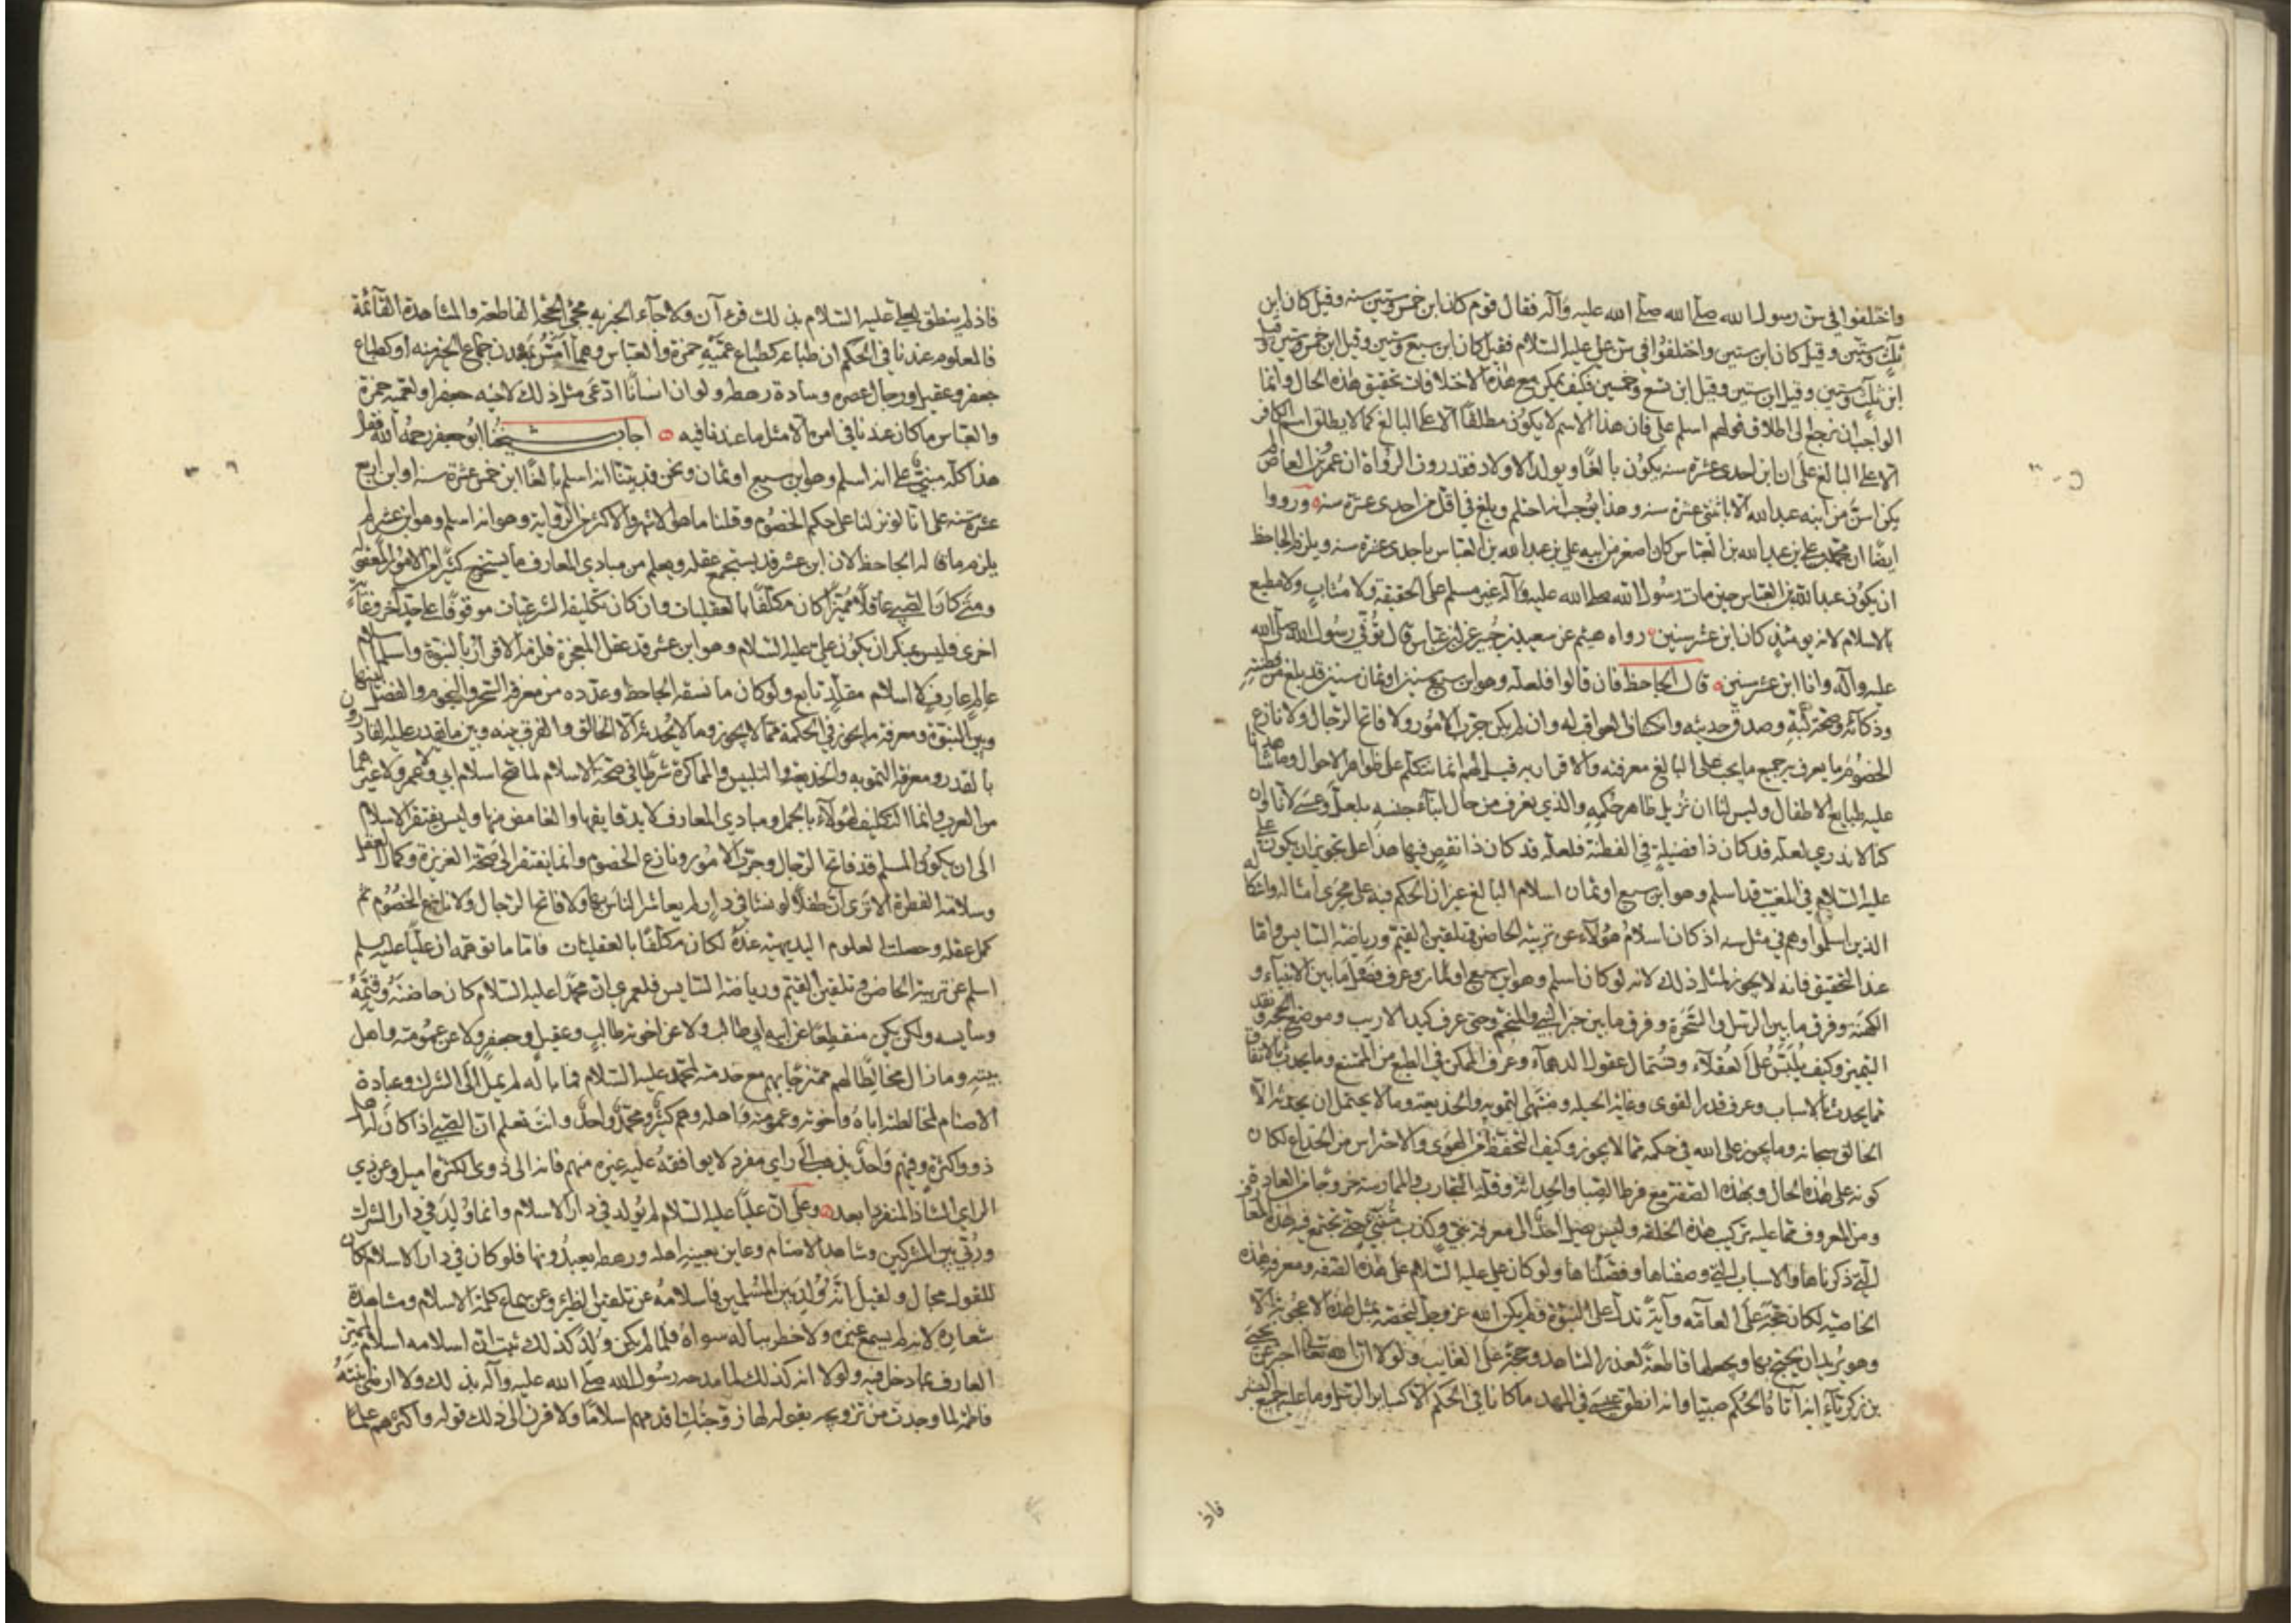 واختلفوا في سن رسول الله صلى الله صلى الله عليه وآله فقال قوم كان ابن خمس وستين سنه وقيل كان ابن
ثلث وستين وقيل كان ابن ستين واختلفوا في سن علي عليه السلام فقيل كان ابن سبع وستين وقيل ابن خمس وستين وقيل
ابن ثلث وستين وقيل ابن ستين وقيل ابن تسع وخمسين فكيف يمكن مع هذه الاختلافات تحقيق هذه الحال وانما
الواجب ان نرجع الى اطلاق قولهم اسلم علي فان هذا الاسم لا يكون مطلقا الا على البالغ كما لا يطلق اسم الكافر
الا على البالغ على ان ابن احدى عشرة سنه يكون بالغا ويولد له الاولاد فقد روت الرواة ان عمرو بن العاص لم
يكن اسن من ابنه عبد الله الا باثنتي عشرة سنه وهذا يوجب انه احتلم وبلغ في اقل من احدى عشرة سنه ورووا
ايضا ان محمد بن علي بن عبد الله بن العباس كان اصغر من ابيه علي بن عبد الله بن العباس باحدى عشرة سنه ويلزم الجاحظ
ان يكون عبد الله بن العباس حين مات رسول الله صلى الله عليه وآله غير مسلم على الحقيقة ولا مثاب ولا مطيع
بالاسلام لانه يومئذ كان ابن عشر سنين رواه هيثم عن سعيد بن جبير عن ابن عباس قال توفي رسول الله صلى الله
عليه وآله وانا ابن عشر سنين قال الجاحظ فان قالوا فلعله وهو ابن سبع سنين او ثمان سنين قد بلغ من فطنته
وذكائه وصحة لبه وصدق حدسه وانكشاف العواقب له وان لم يكن جرب الامور ولا فاتح الرجال ولا نازع
الخصوم ما يعرف به جميع ما يجب على البالغ معرفته والاقرار به قيل لهم انما نتكلم على ظواهر الاحوال وما شاهدنا
عليه طبايع الاطفال وليس لنا ان نزيل ظاهر حكمه والذي يعرف من حال ابناء جنسه بلعل وعسى لانا وان
كنا لا ندري لعله قد كان ذا فضيلة في الفطنة فلعله قد كان ذا نقص فيها هذا على تجويز ان يكون علي
عليه السلام في المغيب قد اسلم وهو ابن سبع او ثمان اسلام البالغ غير ان الحكم فيه على مجرى امثاله واشكاله
الذين اسلموا وهم في مثل سنه اذ كان اسلام هؤلاء عن تربيته الحاضن وتلقين القيم ورياضة السايس واما
عند التحقيق فانه لا يجوز لمثل ذلك لانه لو كان اسلم وهو ابن سبع او ثمان وعرف فضل ما بين الانبياء و
الكهنة وفرق ما بين الرسل والسحرة وفرق ما بين خبر النبي والمنجم وحتى عرف كيد الاريب وموضع الحجة وبعد
التمييز وكيف يلبس على العقلاء وتستمال عقول الدهماء وعرف الممكن في الطبع من الممتنع وما يحدث بالاتفاق
مما يحدث بالاسباب وعرف قدر القوى وغاية الحيلة ومنتهى التمويه والخديعة وما لا يحتمل ان يحدثه الا
الخالق سبحانه وما يجوز على الله في حكمه مما لا يجوز وكيف التحفظ من الهوى والاحتراس من الخداع لكان
كونه على هذه الحال وبهذه الصفة مع فرط الصبا والحداثة وقلة التجارب والممارسة خروجا من العادة
ومن المعروف مما عليه تركيب هذه الخلقة وليس يصل احد الى معرفة نبي وكذب متنبئ حتى تجتمع فيه هذه المعارف
التي ذكرناها والاسباب التي وصفناها وفصلناها ولو كان علي عليه السلام على هذه الصفة ومعه هذه
الخاصية لكان حجة على العامة وآية تدل على النبوة ولم يكن الله عز وجل ليخصه بمثل هذه الاعجوبة الا
وهو يريد ان يحتج بها ويجعلها قاطعة لعذر الشاهد وحجة على الغايب ولولا ان الله تعالى اخبر عن يحيى
بن زكرياء انه آتاه الحكم صبيا وانه انطق عيسى في المهد ما كانا في الحكم الا كساير الرسل وما عليه جميع البشر
فاذ
فاذ لم ينطق لعلي عليه السلام بذلك قرءآن ولا جاء الخبر به مجيء الحجة القاطعة والمشاهدة القائمة
فالمعلوم عندنا في الحكم ان طباعه كطباع عميه حمزة والعباس وهما امس بمعدن جماع الخير منه او كطباع
جعفر وعقيل ورجال عصره وسادة رهطه ولو ان انسانا ادعى مثل ذلك لاخيه جعفر او لعمه حمزة
والعباس ما كان عندنا في امره الا مثل ما عندنا فيه اجاب شيخنا ابو جعفر رحمه الله فقال
هذا كله مبني على انه اسلم وهو ابن سبع او ثمان ونحن قد بينا انه اسلم بالغا ابن خمس عشرة سنه او ابن اربع
عشرة سنه على انا لو نزلنا على حكم الخصوم وقلنا ما هو الاشهر والاكثر من الرواية وهو انه اسلم وهو ابن عشر لم
يلزم ما قاله الجاحظ لان ابن عشر قد يستجمع عقله ويعلم من مبادي المعارف ما يستخرج كثيرا من الامور المعقولة
ومتى كان الصبي عاقلا مميزا كان مكلفا بالعقليات وان كان تكليفه الشرعيات موقوفا على حد آخر وغاية
اخرى فليس بمنكر ان يكون علي عليه السلام وهو ابن عشر قد عقل المعجزة فلزمه الاقرار بالنبوة واسلم اسلام
عالم عارف لا اسلام مقلد تابع ولو كان ما نسقه الجاحظ وعدده من معرفة السحر والنجوم والفصل بينهما
وبين النبوة ومعرفة ما يجوز في الحكمة مما لا يجوز وما لا يحدثه الا الخالق والفرق بينه وبين ما يقدر عليه القادرون
بالقدر ومعرفة التمويه والخديعة والتلبيس والمماكرة شرطا في صحة الاسلام لما صح اسلام ابي ولا عمر ولا غيرهما
من العرب وانما التكليف لهؤلاء بالجمل ومبادي المعارف لا بدقايقها والغامض منها وليس يفتقر الاسلام
الى ان يكون المسلم قد فاتح الرجال وجرب الامور ونازع الخصوم وانما يفتقر الى صحة الغريزة وكمال العقل
وسلامة الفطرة الا ترى ان طفلا لو نشا في دار لم يعاشر الناس بها ولا فاتح الرجال ولا نازع الخصوم ثم
كمل عقله وحصلت العلوم البديهية عنده لكان مكلفا بالعقليات فاما ما توهمه ان عليا عليه السلم
اسلم عن تربية الحاضن وتلقين القيم ورياضة السايس فلعمري ان محمدا عليه السلام كان حاضنه وقيمه
وسايسه ولكن لم يكن منقطعا عن ابيه ابي طالب ولا عن اخوته طالب وعقيل وجعفر ولا عن عمومته واهل
بيته وما زال مخالطا لهم ممتزجا بهم مع خدمته لمحمد عليه السلام فما باله لم يمل الى الشرك وعبادة
الاصنام لمخالطته اباه واخوته وعمومته واهله وهم كثير ومحمد واحد وانت تعلم ان الصبي اذا كان له اهل
ذوو كثرة وفيهم واحد يذهب الى راي مفرد لا يوافقه عليه غيره منهم فانه الى ذوي الكثرة اميل وعن ذي
الراي الشاذ المنفرد ابعد وعلى ان عليا عليه السلام لم يولد في دار الاسلام وانما ولد في دار الشرك
وربي بين المشركين وشاهد الاصنام وعاين بعينه اهله ورهطه يعبدونها فلو كان في دار الاسلام لكان
للقول مجال ولقيل انه ولد بين المسلمين فاسلامه عن تلقين الظئر وعن سماع كلمة الاسلام ومشاهدة
شعاره لانه لم يسمع غيره ولا خطر بباله سواه فلما لم يكن ولد كذلك ثبت ان اسلامه اسلام المميز
العارف بما دخل فيه ولولا انه كذلك لما مدحه رسول الله صلى الله عليه وآله بذلك ولا ارضى ابنته
فاطمة لما وجدت من تزويجه بقوله لها زوجتك اقدمهم اسلاما ولا قرن الى ذلك قوله واكثرهم علما